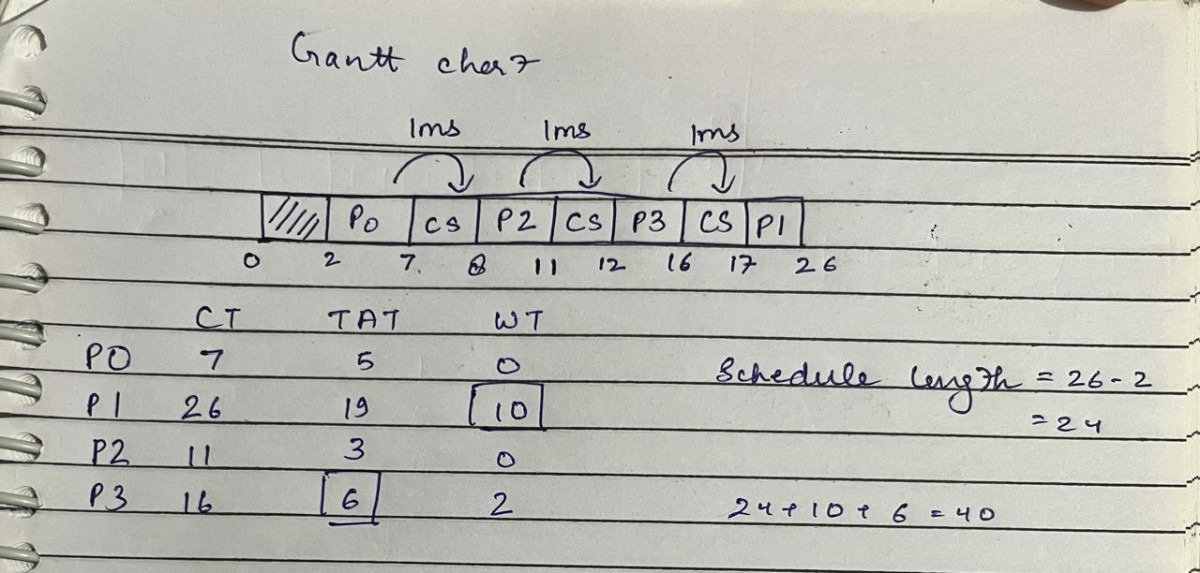 Gantt chart
1ms 1ms 1ms
P0 CS P2 CS P3 CS P1
0 2 7. 8 11 12 16 17 26
CT TAT WT
P0 7 5 0
Schedule length = 26-2
P1 26 19 10
= 24
P2 11 3 0
P3 16 6 2
24+10+6=40